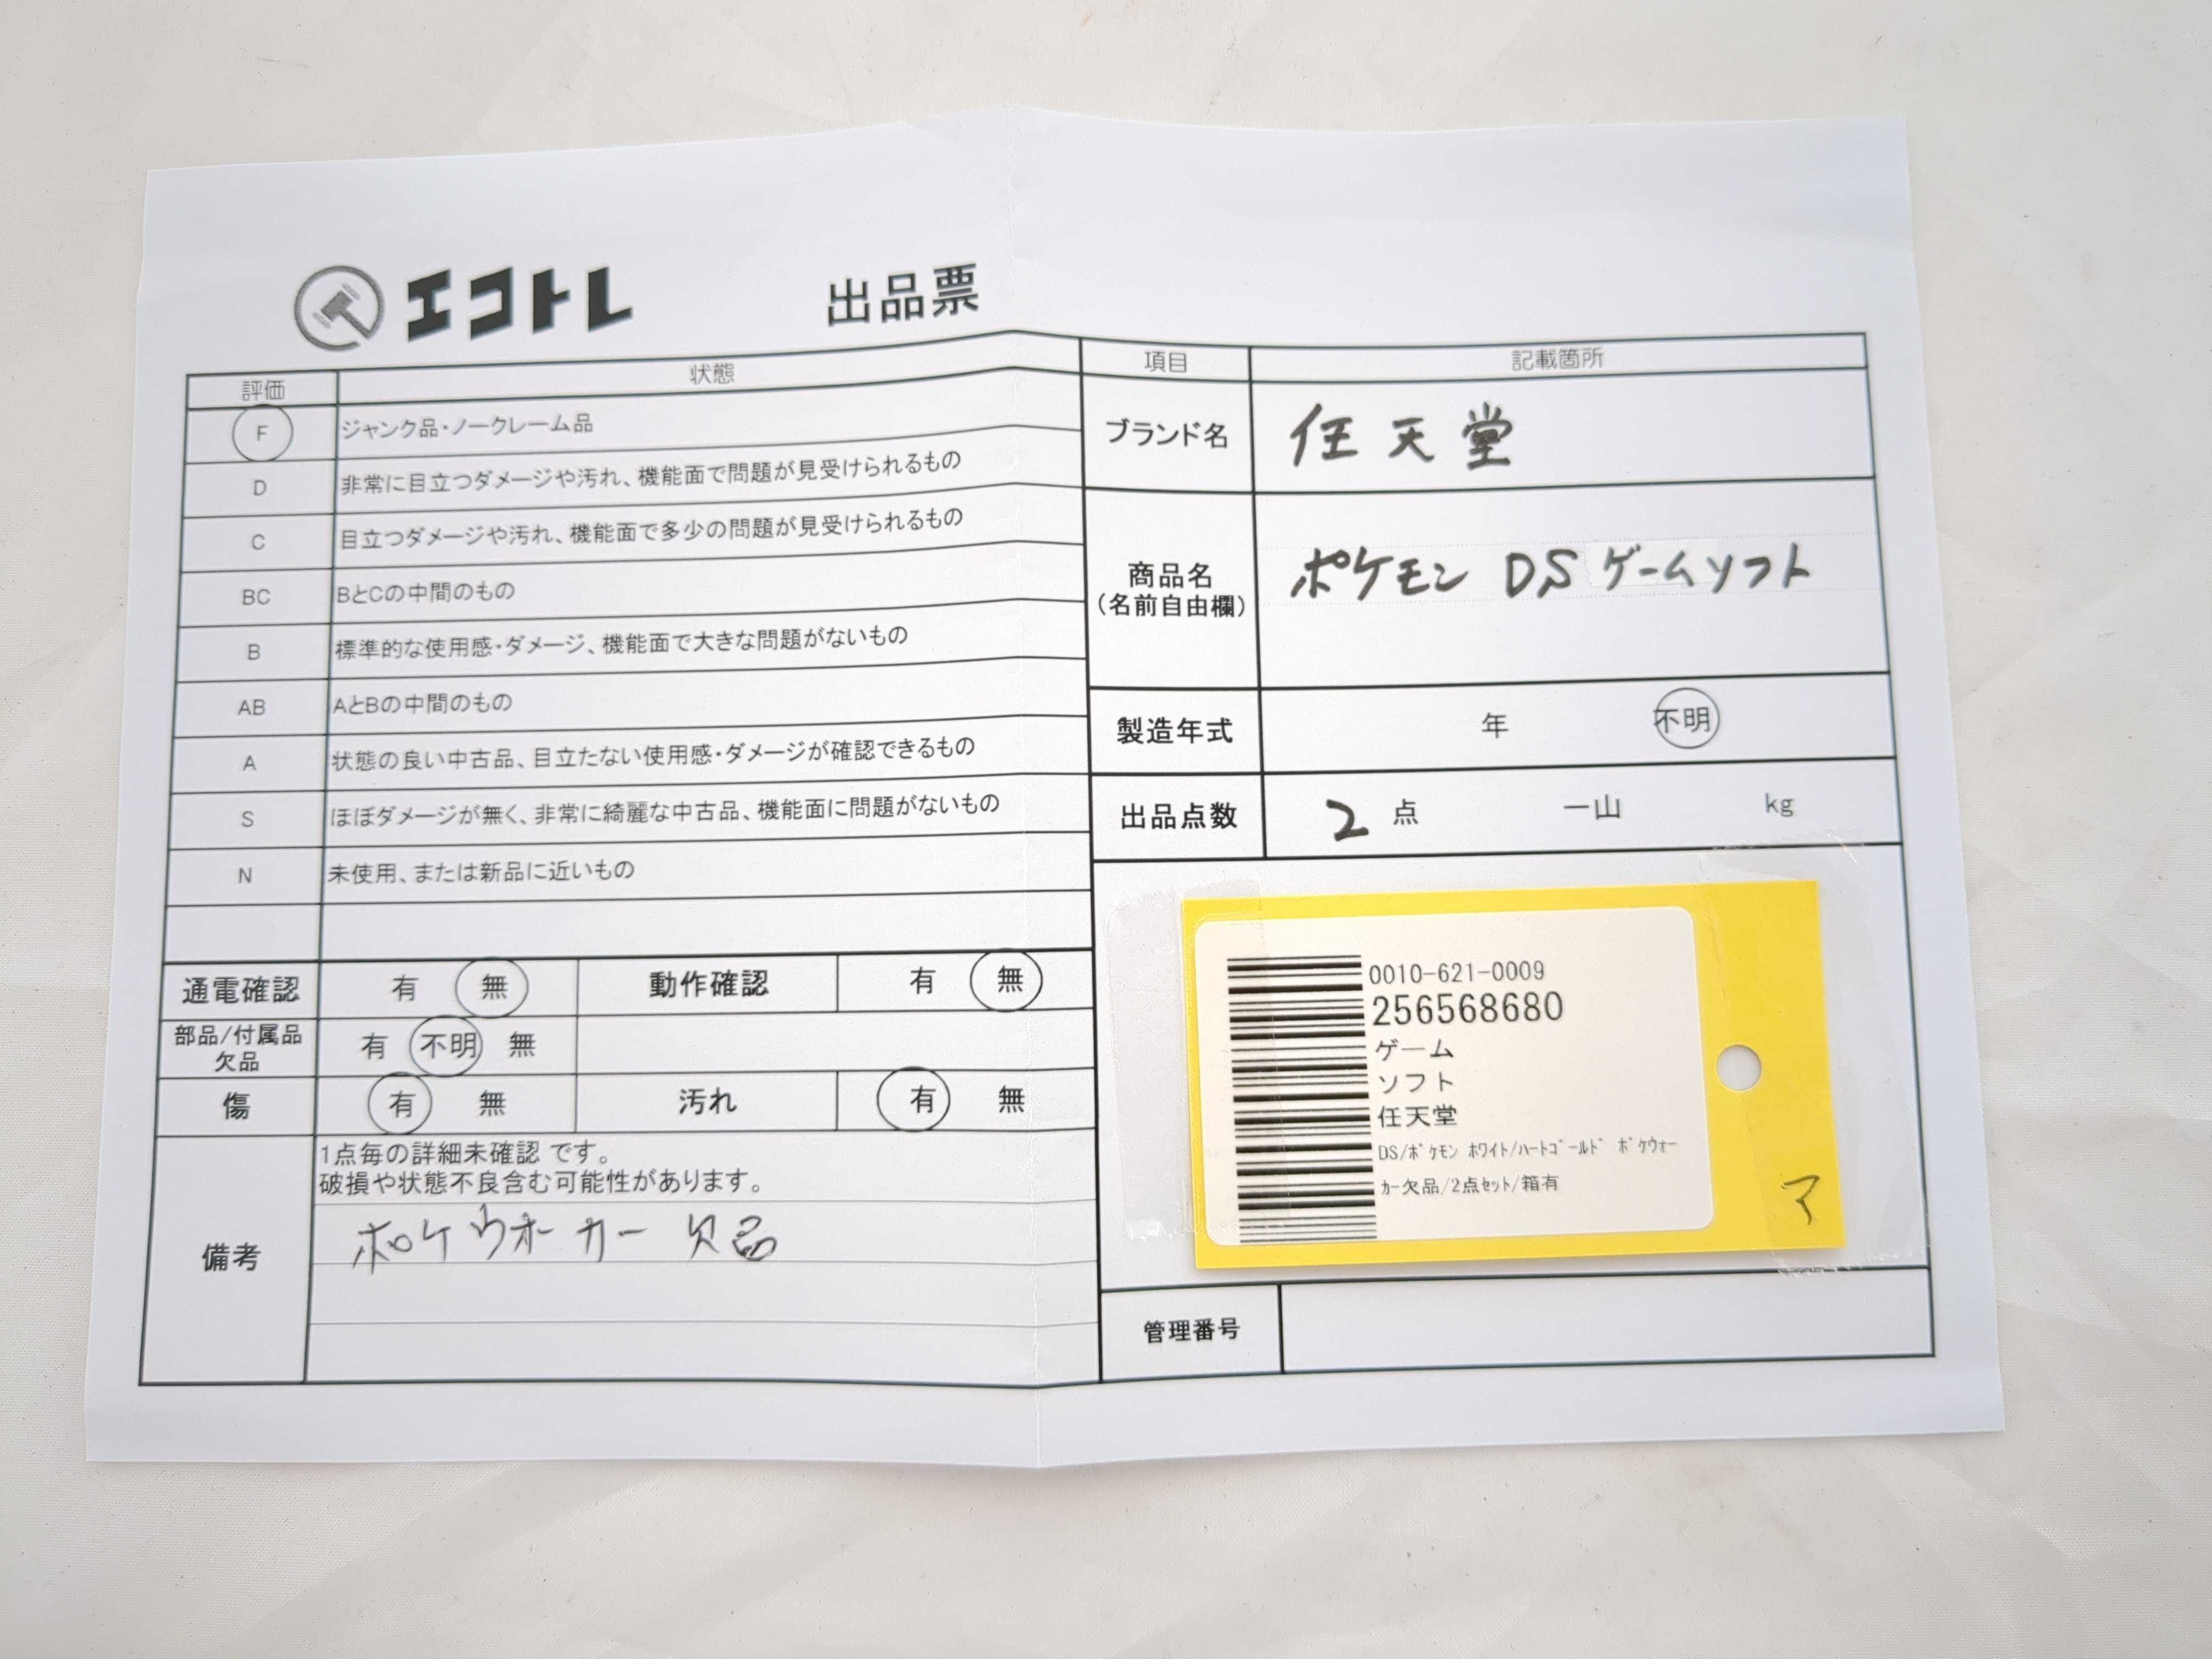 エコトレ 出品票
評価 状態
F ジャンク品・ノークレーム品
D 非常に目立つダメージや汚れ、機能面で問題が見受けられるもの
C 目立つダメージや汚れ、機能面で多少の問題が見受けられるもの
BC BとCの中間のもの
B 標準的な使用感・ダメージ、機能面で大きな問題がないもの
AB AとBの中間のもの
A 状態の良い中古品、目立たない使用感・ダメージが確認できるもの
S ほぼダメージが無く、非常に綺麗な中古品、機能面に問題がないもの
N 未使用、または新品に近いもの
通電確認 有 無 動作確認 有 無
部品/付属品
欠品
有 不明 無
傷 有 無 汚れ 有 無
備考
1点毎の詳細未確認 です。
破損や状態不良含む可能性があります。
ポケウォーカー 欠品
項目 記載箇所
ブランド名 任天堂
商品名
(名前自由欄)
ポケモン DS ゲームソフト
製造年式 年 不明
出品点数 2 点 一山 kg
0010-621-0009
256568680
ゲーム
ソフト
任天堂
DS/ﾎﾟｹﾓﾝ ﾎﾜｲﾄ/ﾊｰﾄｺﾞｰﾙﾄﾞ ﾎﾟｹｳｫｰ
ｶｰ欠品/2点ｾｯﾄ/箱有
ア
管理番号